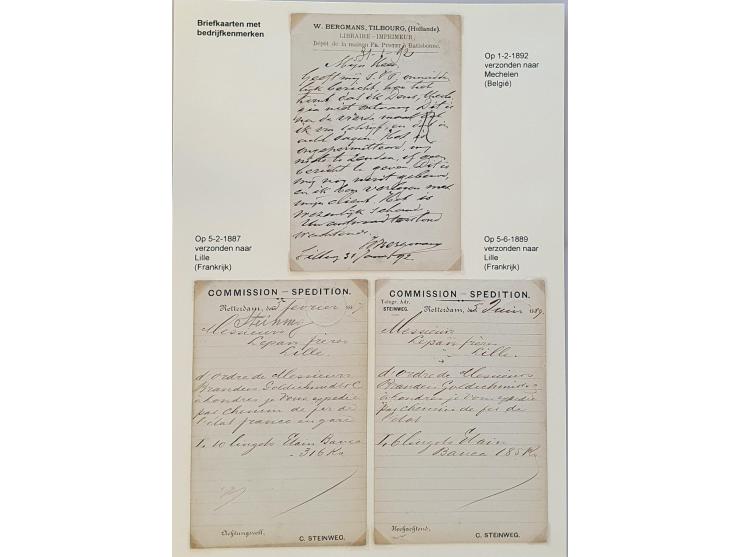 Briefkaarten met
bedrijfkenmerken
W. BERGMANS, TILBOURG, (Hollande).
LIBRAIRE-IMPRIMEUR,
Dépôt de la maison Fr. Pustet à Ratisbonne.
31-1-92
Mijn Heer,
Geeft mij S.V.P. onmidde
lijk bericht, hoe het
komt dat ik Dens, Theolo
gia niet ontvang. Dit is
nu de vierde maal dat
ik om schrijf, en dat in
acht dagen. Het is
ongepermitteerd, mij
niets te zenden, of geen
bericht te geven. Dit is
mij nog nooit gebeurd,
en ik kan verliezen met
mijn client. Het is
wezenlijk schande.
Uw antwoord
wachtende,
W Bergmans
Tilburg 31 Jan 92
Op 1-2-1892
verzonden naar
Mechelen
(België)
Op 5-2-1887
verzonden naar
Lille
(Frankrijk)
Op 5-6-1889
verzonden naar
Lille
(Frankrijk)
COMMISSION – SPEDITION.
Rotterdam, den 5 fevrier 1887
Messieurs
Lepan frères
Lille.
d'ordre de Messieurs
Brandeis Goldschmidt & C
à Londres je vous expedie
par chemin de fer de
l'etat franco en gare
10 lingots Etain Banca
316 Ko
Achtungsvoll,
C. STEINWEG.
COMMISSION – SPEDITION.
Telegr. Adr.
STEINWEG.
Rotterdam, den 5 Juin 1889.
Messieurs
Lepan frères
Lille.
d'ordre de Messieurs
Brandeis Goldschmidt
à Londres je vous expedie
par chemin de fer de
l'etat
6 lingots Etain
Banca 185 Ko
Hochachtend,
C. STEINWEG.